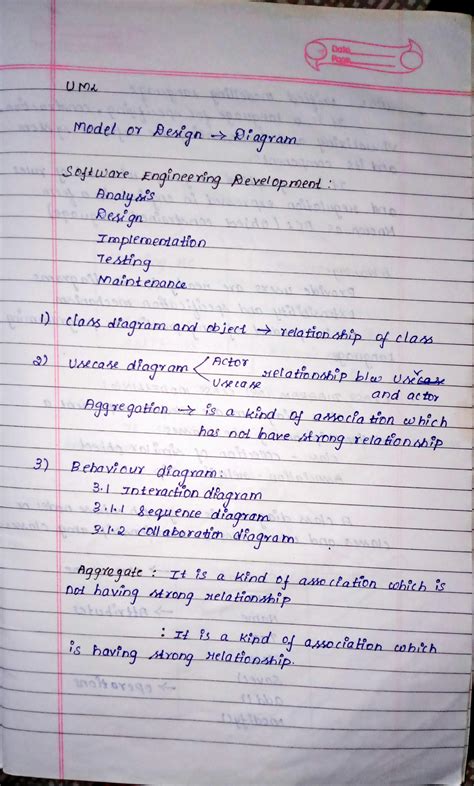 Date
Page
UML
Model or Design → Diagram
Software Engineering Development :
Analysis
Design
Implementation
Testing
Maintenance
1) class diagram and object → relationship of class
2) Usecase diagram < Actor Usecase relationship b/w usecase
and actor
Aggregation → is a kind of association which
has not have strong relationship
3) Behaviour diagram:
3.1 Interaction diagram
3.1.1 sequence diagram
3.1.2 collaboration diagram
Aggregate : It is a kind of association which is
not having strong relationship
: It is a kind of association which
is having strong relationship.